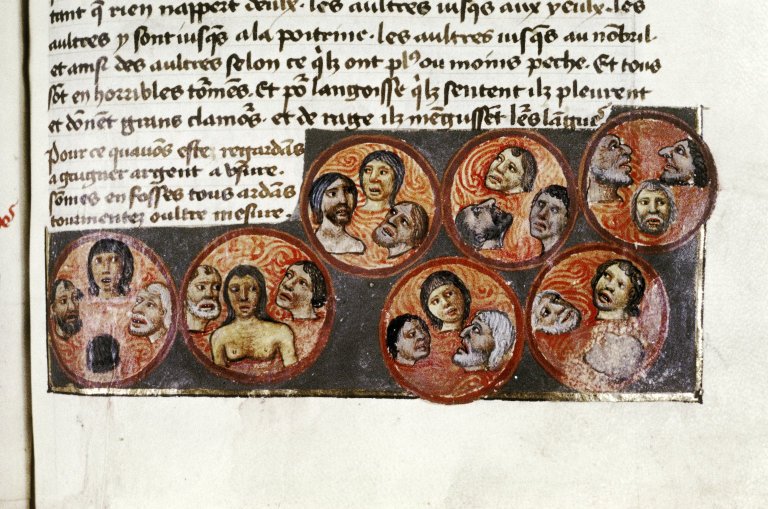 tant q̄ rien n'appert d'eulx. les aultres iusq̄s aux yeulx. les
aultres y sont iusq̄s a la poitrine. les aultres iusq̄s au nōbril.
et ainsi des aultres selon ce q̄lz ont pl⁹ ou moins peche. Et tous
sōt en horribles tōmēs. Et po᷑ langoisse q̄lz sentent ilz pleurent
et dōnēt grans clamo᷑s. et de rage ilz mēgussēt le᷑s langues
Pour ce quavōs este regardās
a gaigner argent a usure.
sōmes en fosses tous ardās
tourmentez oultre mesure.